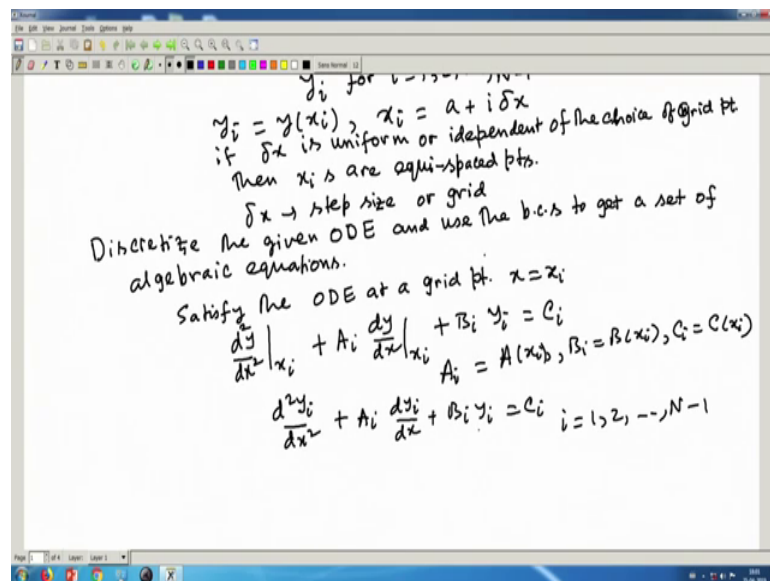 Journal
File Edit View Journal Tools Options Help
Sans Normal 12
y_i for i = 1, 2, -, N-1
y_i = y(x_i), x_i = a + i δx
if δx is uniform or idependent of the choice of grid pt
Then x_i s are equi-spaced pts.
δx → step size or grid
Discretize the given ODE and use the b.c.s to get a set of
algebraic equations.
Satisfy the ODE at a grid pt. x = x_i
d²y/dx²|x_i + A_i dy/dx|x_i + B_i y_i = C_i
A_i = A(x_i), B_i = B(x_i), C_i = C(x_i)
d²y_i/dx² + A_i dy_i/dx + B_i y_i = C_i i = 1, 2, --, N-1
Page 1 of 4 Layer: Layer 1